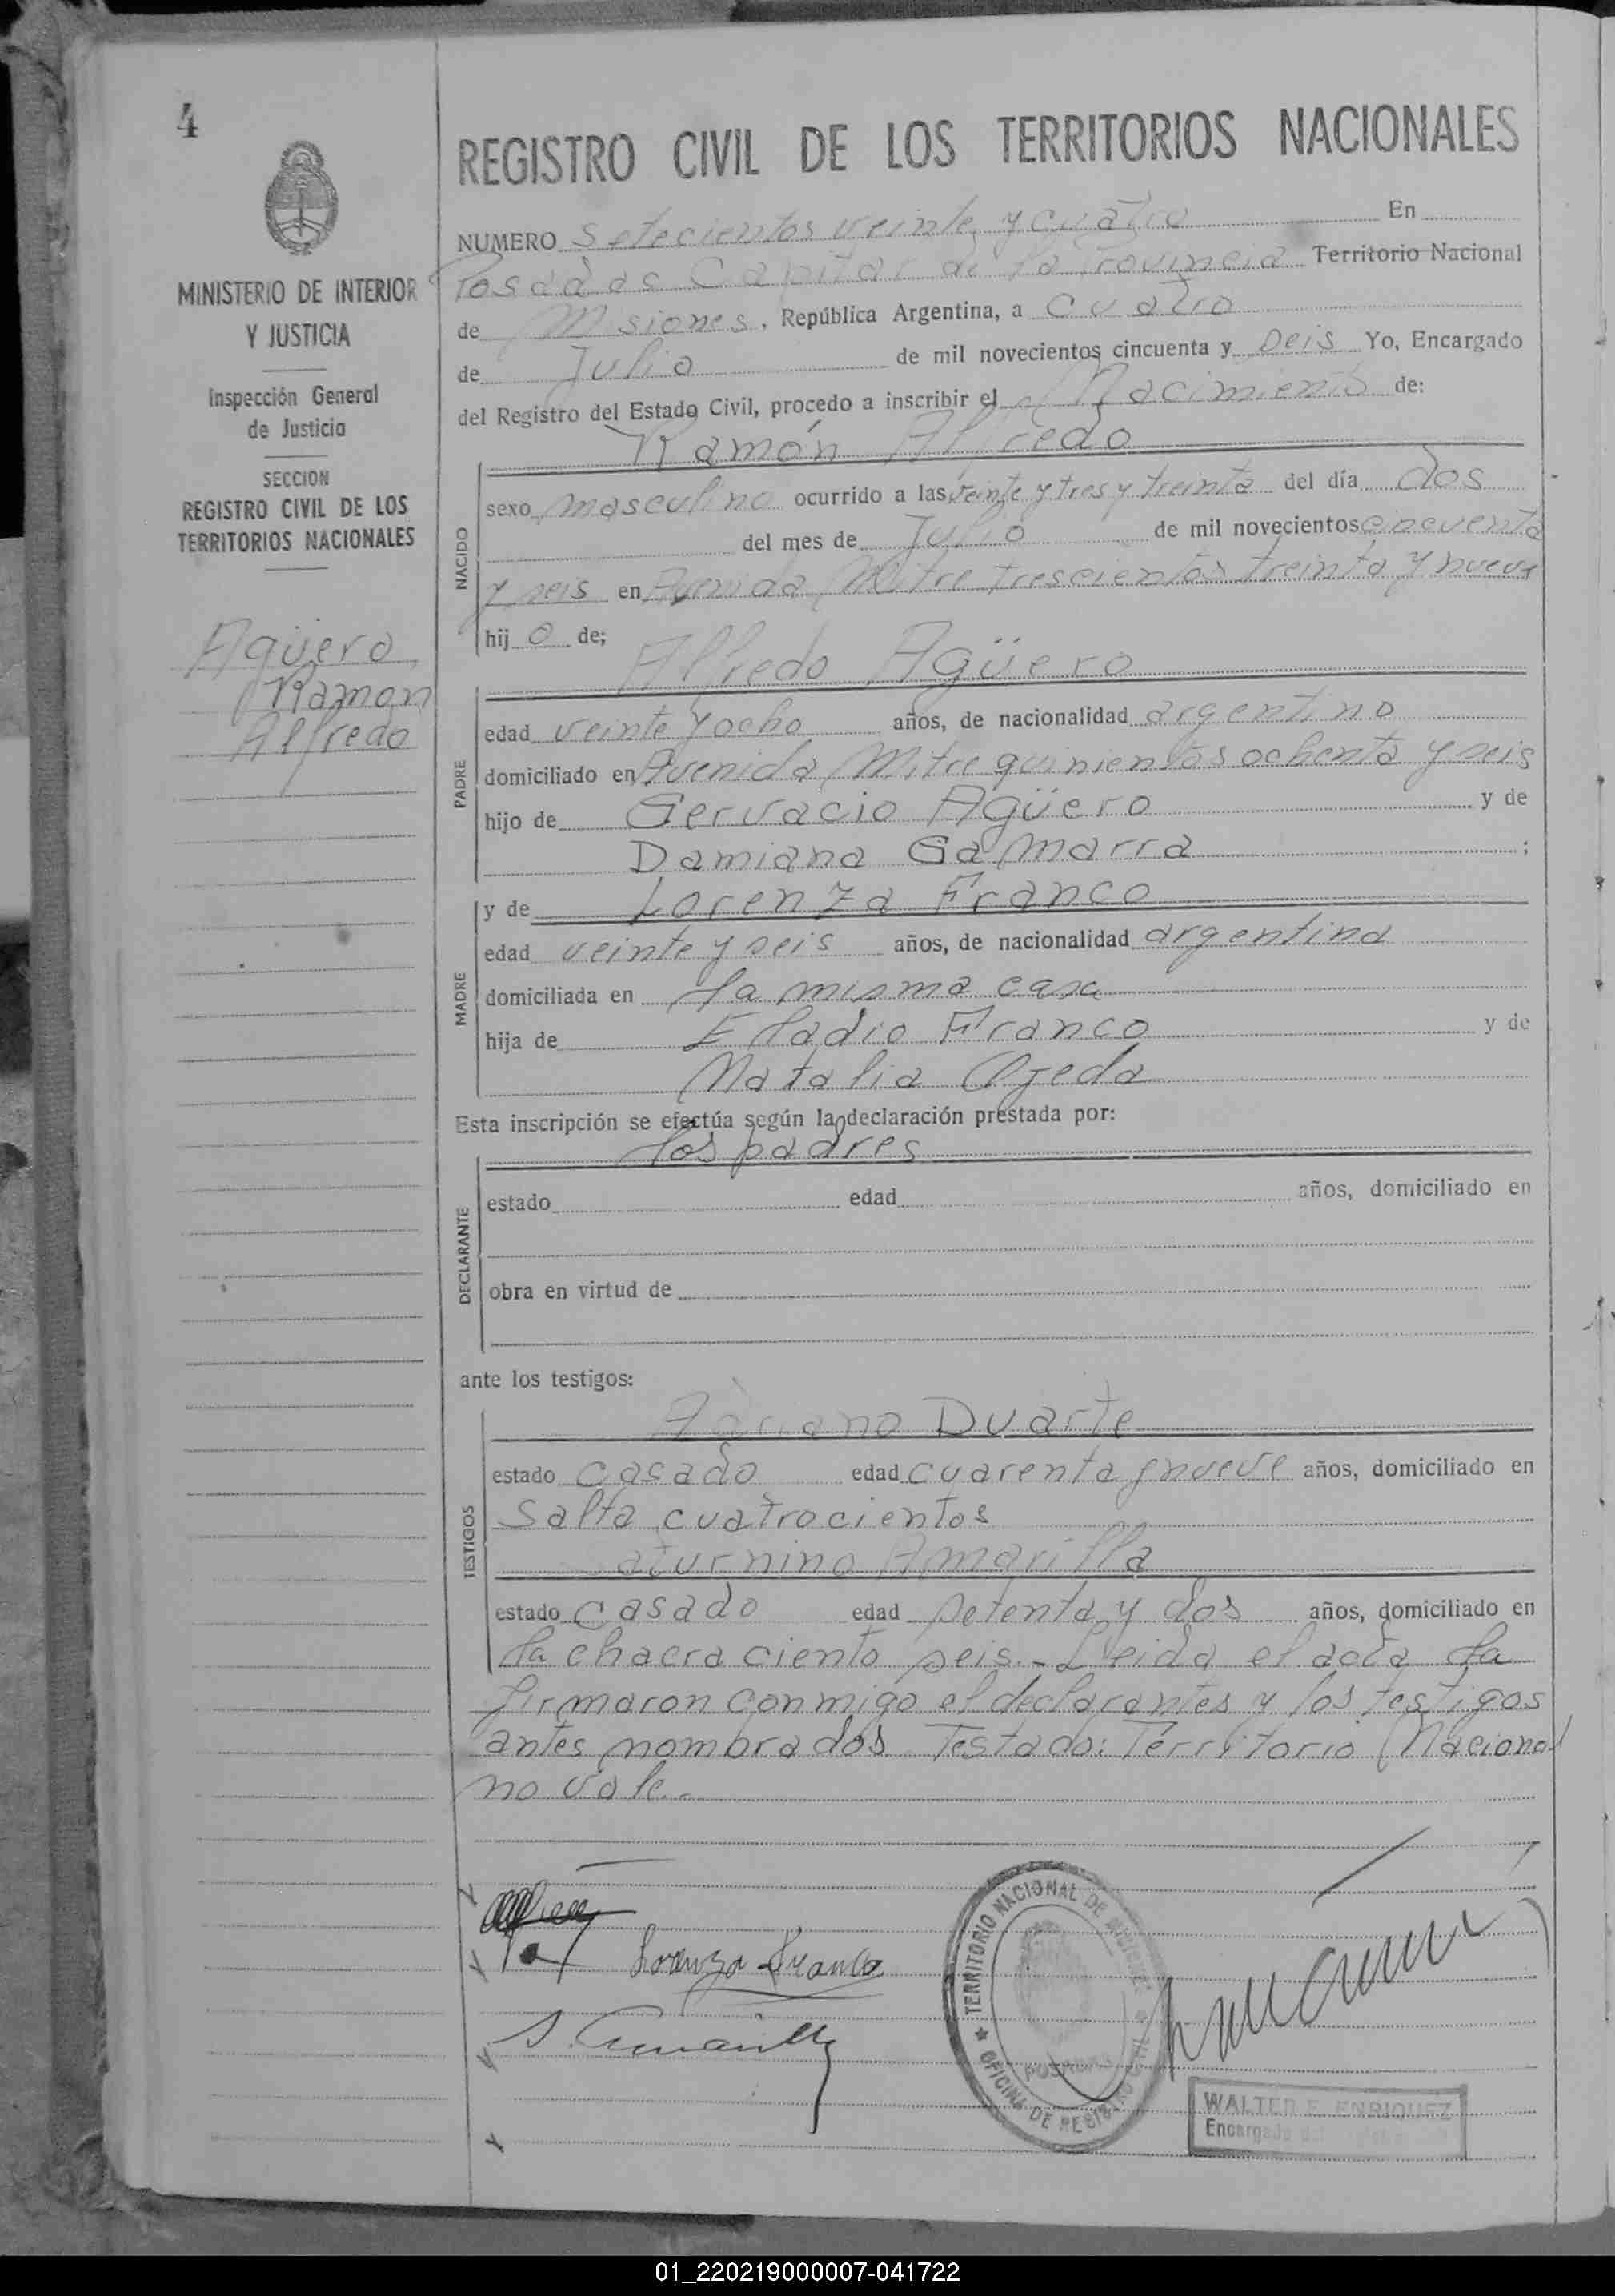 4
MINISTERIO DE INTERIOR
Y JUSTICIA
Inspección General
de Justicia
SECCION
REGISTRO CIVIL DE LOS
TERRITORIOS NACIONALES
Agüero
Ramon
Alfredo
REGISTRO CIVIL DE LOS TERRITORIOS NACIONALES
NUMERO Setecientos veinte y cuatro En
Posadas Capital de la Provincia Territorio Nacional
de Misiones, República Argentina, a cuatro
de Julio de mil novecientos cincuenta y seis Yo, Encargado
del Registro del Estado Civil, procedo a inscribir el Nacimiento de:
Ramón Alfredo
NACIDO
sexo masculino ocurrido a las veinte y tres y treinta del día dos
del mes de Julio de mil novecientos cincuenta
y seis en Avenida Mitre trescientos treinta y nueve
hijo de;
Alfredo Agüero
PADRE
edad veinte y ocho años, de nacionalidad argentino
domiciliado en Avenida Mitre quinientos ochenta y seis
hijo de Gervacio Agüero y de
Damiana Gamarra ;
MADRE
y de Lorenza Franco
edad veinte y seis años, de nacionalidad argentina
domiciliada en la misma casa
hija de Eladio Franco y de
Natalia Ojeda
Esta inscripción se efectúa según la declaración prestada por:
los padres
DECLARANTE
estado edad años, domiciliado en
obra en virtud de
ante los testigos:
Duarte
TESTIGOS
estado casado edad cuarenta y nueve años, domiciliado en
Salta cuatrocientos
Saturnino Amarilla
estado casado edad setenta y dos años, domiciliado en
la chacra ciento seis.- Leida el acta la
firmaron conmigo el declarantes y los testigos
antes nombrados Testado: Territorio Nacional
no vale.-
Lorenza Franco
S. Amarilla
TERRITORIO NACIONAL DE MISIONES
POSADAS
OFICINA DE REGISTRO CIVIL
WALTER E. ENRIQUEZ
Encargado del
01_220219000007-041722